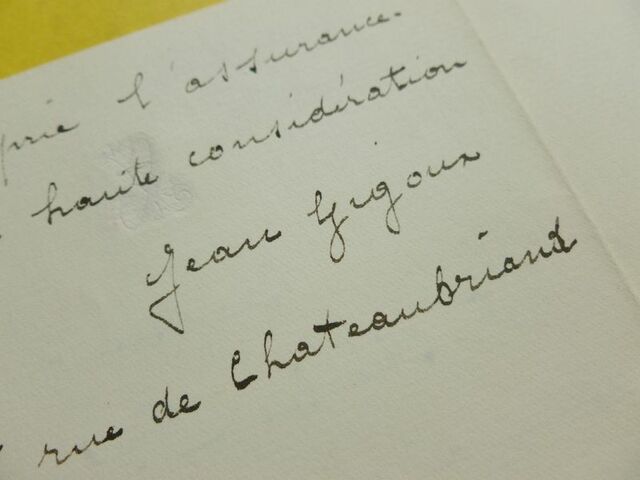 prie l'assurance.
haute considération
Jean Gigoux
rue de Chateaubriand